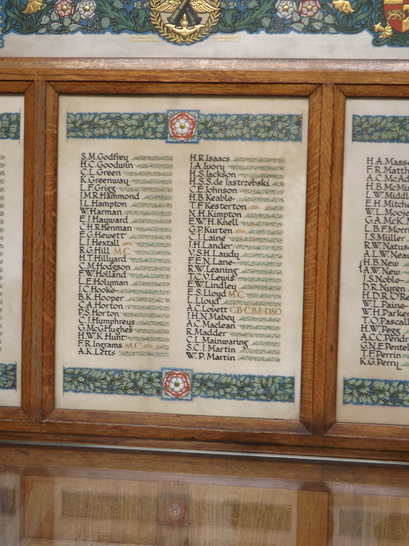 S.M.Godfrey
H.C.Goodwin
C.L.Green
R.Greenway
L.F.Grigg
J.M.R.Hammond
J.L.Hampton
W.Harman
E.J.Hayward
C.H.R.Henman
E.G.Hewett
L.J.Hextall
R.G.Hill M.C.
H.T.Hillyard
C.M.Hodgson
F.W.Holland
L.E.Holyman
J.C.Hooke
B.K.Hooper
C.A.Horton
P.S.Horton
C.J.Humphreys
G.McGHughes
H.W.K.Hunt
F.R.Ingrams M.C.
A.K.Letts
H.R.Isaacs
J.A.Ivory
H.S.Jackson
H.S.S.de Jastrzebski
C.E.Johnson
H.B.Keable
T.F.Kesterton
N.H.Kimpton
E.W.H.Knell
G.P.Kurten
C.J.Laine
J.H.Lander
V.S.H.Laudy
F.E.N.Lane
R.W.Leaning
T.C.V.Lewis
E.W.Lindley
E.S.Lloyd M.C.
L.Lloyd
A.C.Lovett C.B C.B.E DSO
J.H.N.Mabey
A.C.Maclean
R.Madder
C.L.Mainwaring
S.C.J.Martin
W.P.Martin
H.A.Mass
F.R.Matth
A.C.McA
H.B.McM
L.W.Middl
E.H.Mitch
W.L.Moo
G.A.McK.
L.B.F.Mor
J.S.Müller
R.W.Natus
A.L.W.Nea
H.B.New
A.W.New
J.S.Noble
D.R.Nuren
H.D.R.O'R
W.L.Paine
W.H.Parker
T.O.Pascal
H.W.Pegg
A.C.C.Pend
G.N.E.Pente
J.E.Perrin
K.G.Perry